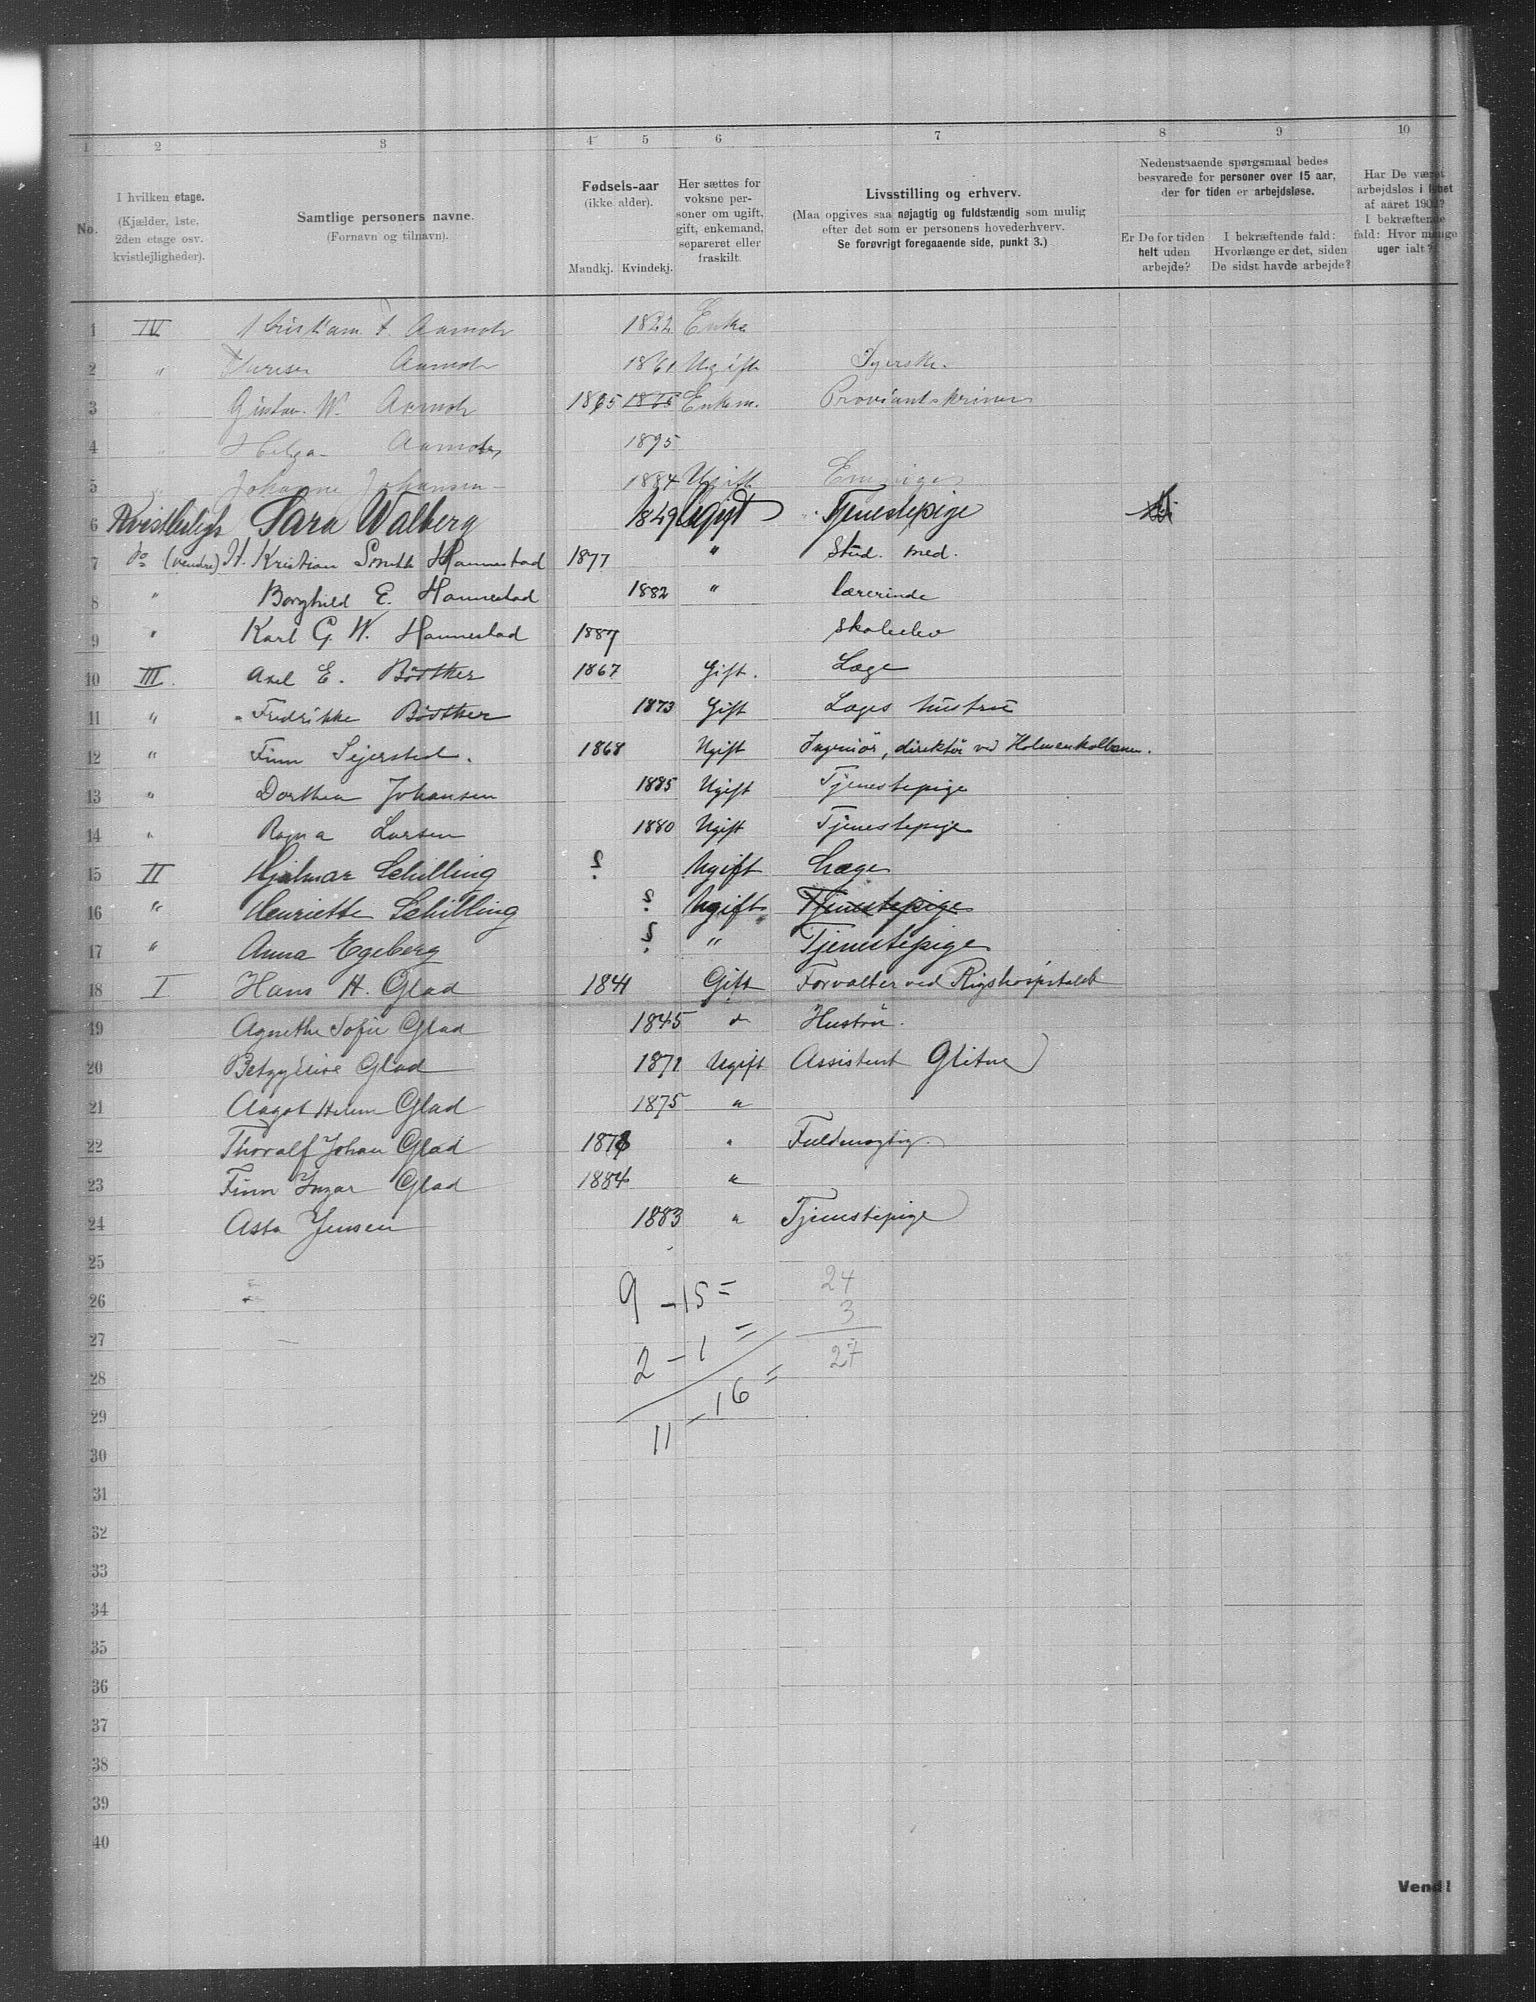 1 2 3 4 5 6 7 8 9 10
No.
I hvilken etage.
(Kjælder, 1ste,
2den etage osv.
kvistlejligheder).
Samtlige personers navne.
(Fornavn og tilnavn).
Fødsels-aar
(ikke alder).
Mandkj. Kvindekj.
Her sættes for
voksne per-
soner om ugift,
gift, enkemand,
separeret eller
fraskilt.
Livsstilling og erhverv.
(Maa opgives saa nøjagtig og fuldstændig som mulig
efter det som er personens hovederhverv.
Se forøvrigt foregaaende side, punkt 3.)
Nedenstaaende spørgsmaal bedes
besvarede for personer over 15 aar,
der for tiden er arbejdsløse.
Er De for tiden
helt uden
arbejde?
I bekræftende fald:
Hvorlænge er det, siden
De sidst havde arbejde?
Har De været
arbejdsløs i løbet
af aaret 1902?
I bekræftende
fald: Hvor mange
uger ialt?
1 IV Aamodt 1822 Enke
2 " Aamodt 1861 Ugift Syerske.
3 Gustav. W. Aamodt 1865 1865 Enkem. Proviantskriver
4 " Helga Aamodt 1895
5 " Johanne Johansen 1884 Ugift
6 Kvistleiligh Sara Walberg 1849 Ugift Tjenestepige
7 do (venstre) H. Kristian Smith Hannestad 1877 " Stud. med.
8 " Borghild E. Hannestad 1882 " lærerinde
9 " Karl G. W. Hannestad 1887 Skoleelev
10 III. Axel E. Bödtker 1867 Gift. Læge
11 " Fredrikke Bödtker 1873 Gift Læges hustru
12 " Finn Sejersted. 1868 Ugift Ingeniör, direktör ved Holmenkolbanen.
13 " Dorthea Johansen 1885 Ugift Tjenestepige
14 " Ragna Larsen 1880 Ugift Tjenestepige
15 II Hjalmar Schilling ? Ugift Læge
16 " Henriette Schilling ? Ugift Tjenestepige
17 " Anna Egeberg ? " Tjenestepige
18 I Hans H. Glad 1841 Gift Forvalter ved Rigshospitalet
19 Agnethe Sofie Glad 1845 " Hustru.
20 Glad 1871 Ugift Assistent Glitne
21 Aagot Helene Glad 1875 "
22 Thoralf Johan Glad 1878 " Fuldmægtig.
23 Finn Ingar Glad 1884 "
24 Asta Jensen 1883 " Tjenestepige
25
26 9 - 15 = 24
27 2 - 1 = 3
28 11 - 16 = 27
29
30
31
32
33
34
35
36
37
38
39
40
Vend!